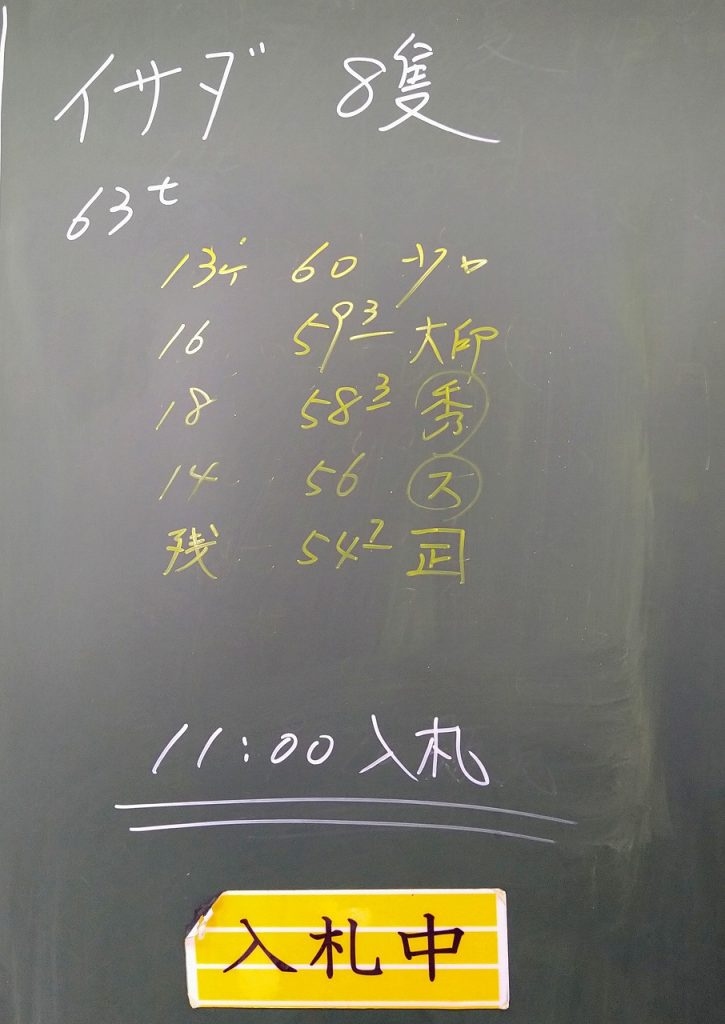 イサダ 8隻
63t
13ケ 60
16 59 3 大印
18 58 3 秀
14 56 ス
残 54 7 正
11:00 入札
入札中